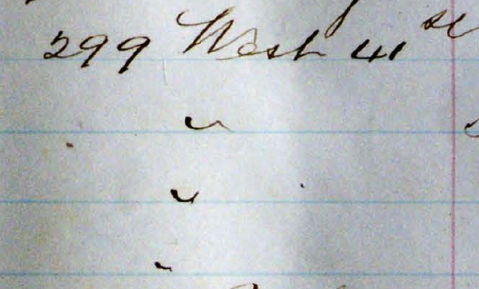 299 West 41 st
"
"
"